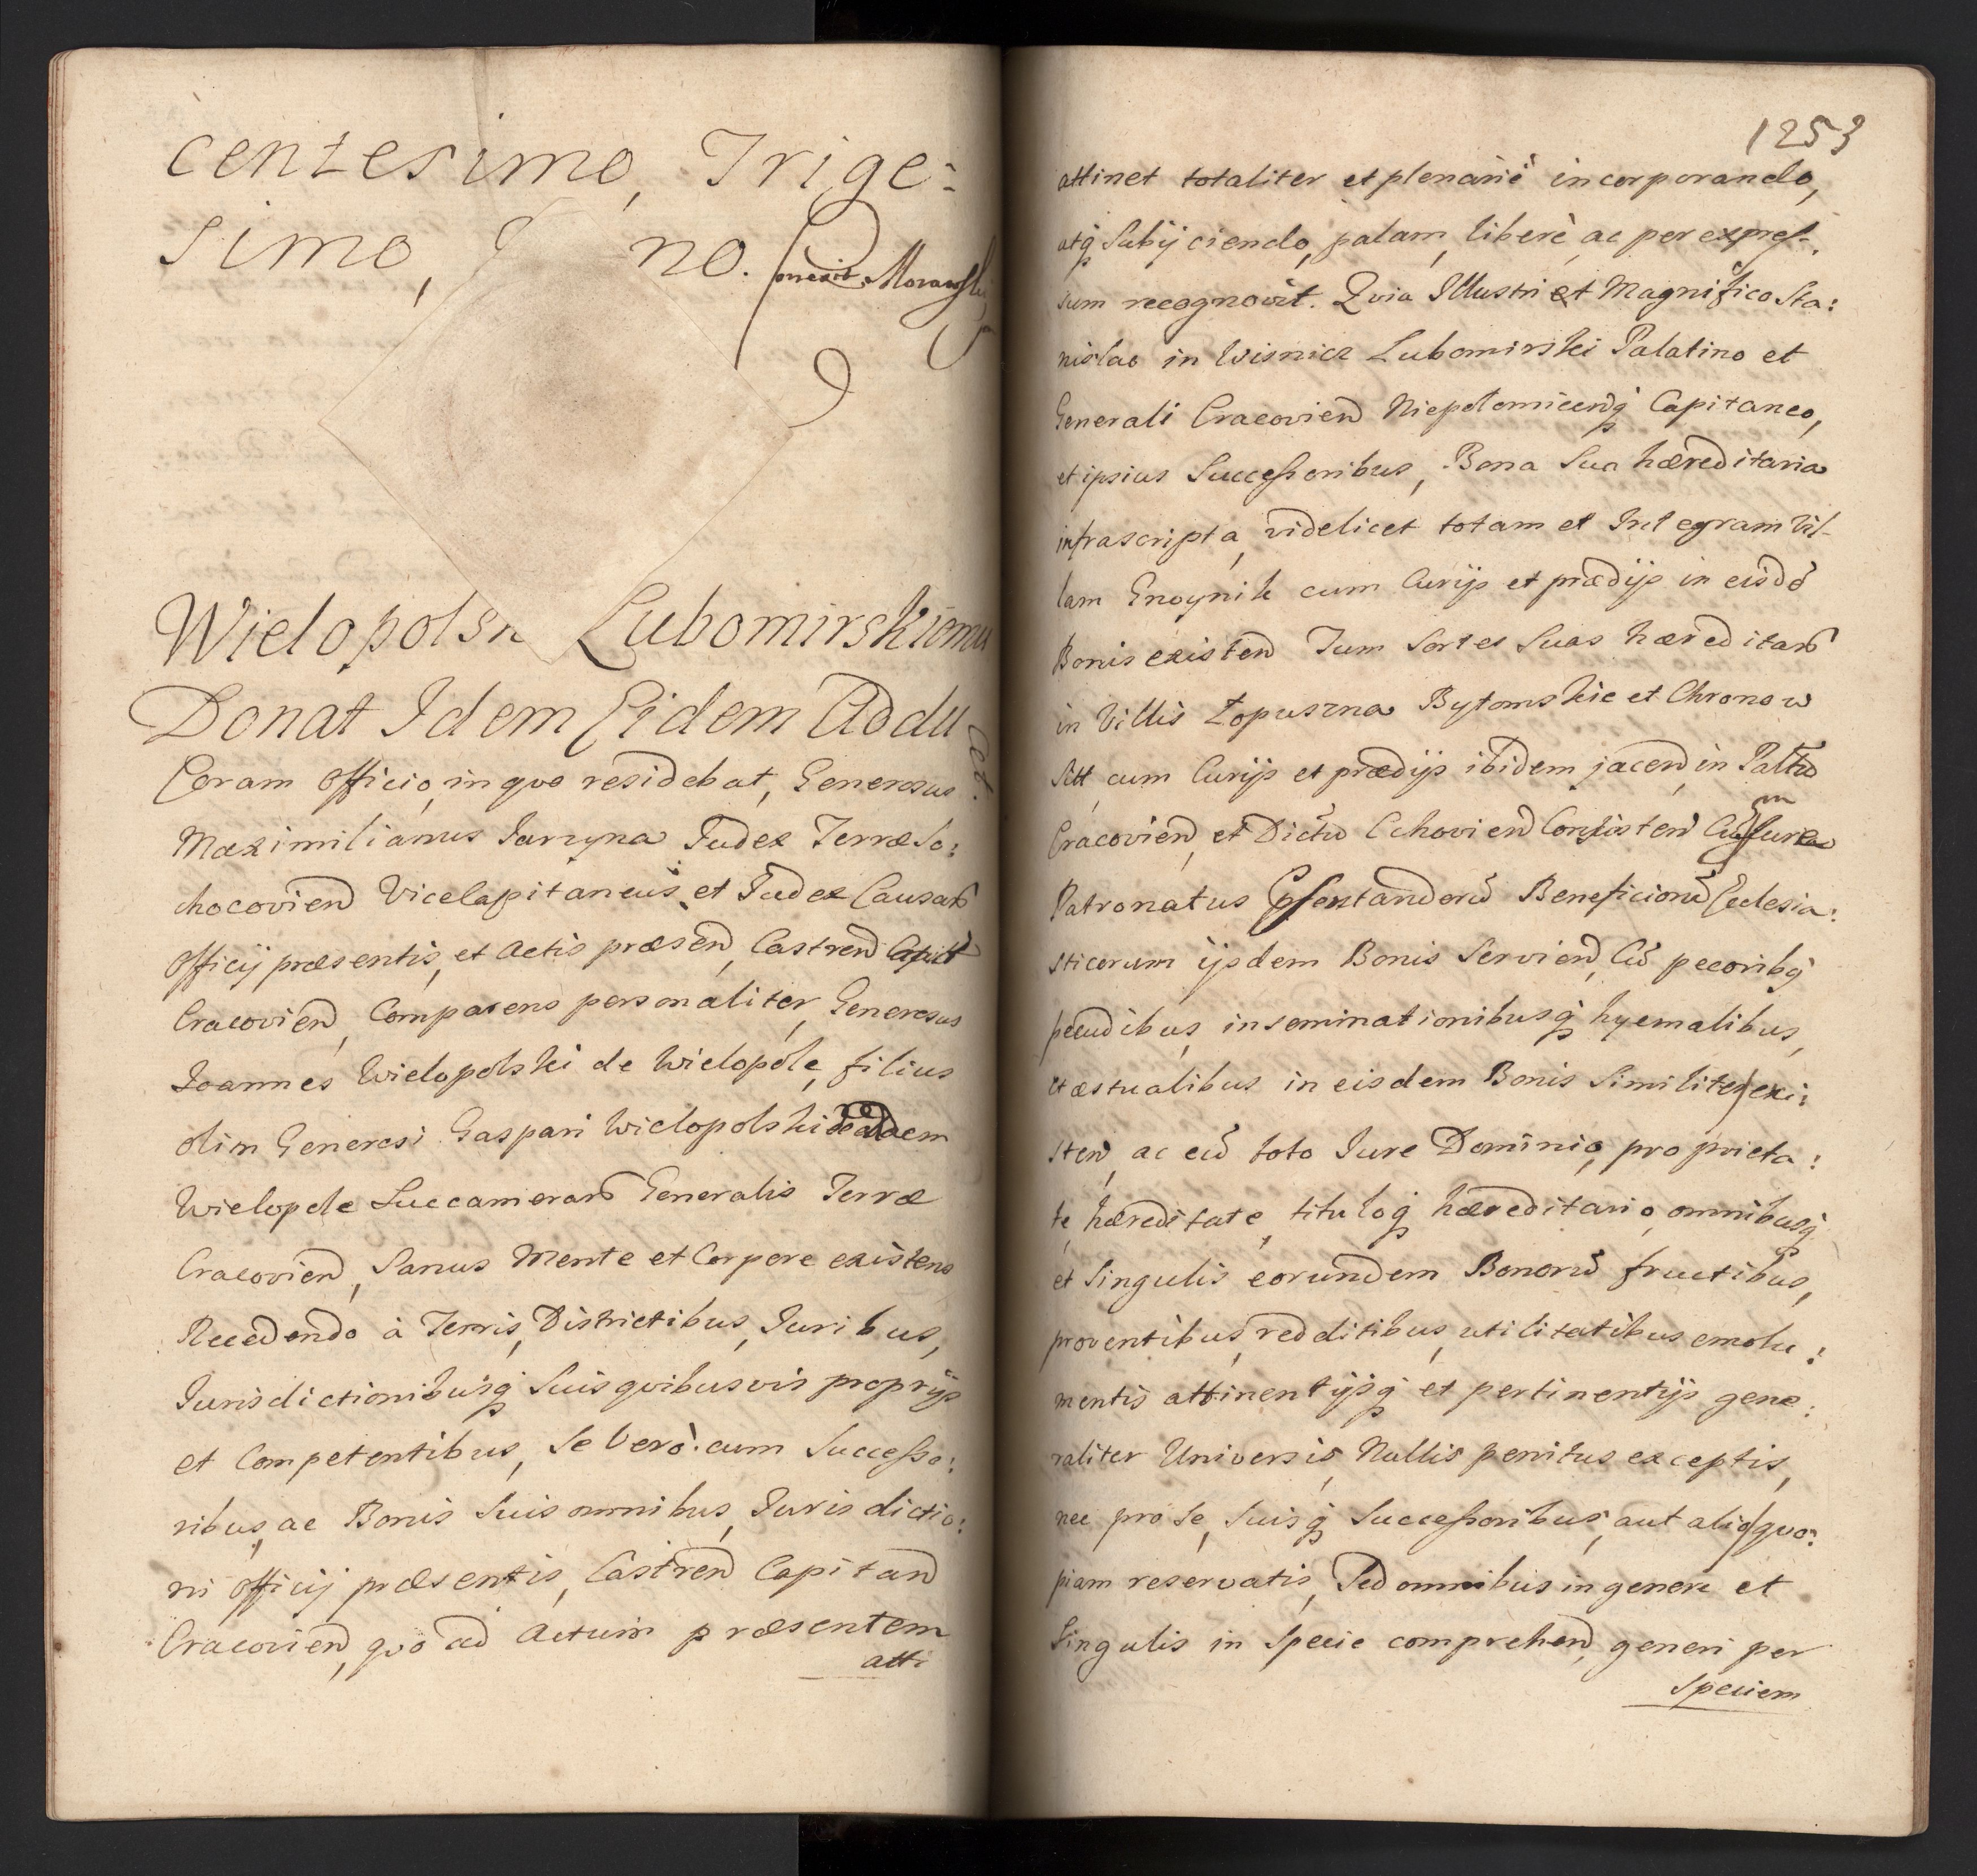 centesimo, Trige:
simo, no. correxit Morawski
Wielopolsk Lubomirskiomu
Donat Idem Eidem Addu
cet.
Coram Officio, in quo residebat, Generosus
Maximilianus Jarzyna Judex Terræ So:
chocovien Vice Capitaneus, et Judex Causar
Officij præsentis, et Actis præsen, Castren Capit
Cracovien, Comparens personaliter, Generosus
Joannes Wielopolski de Wielopole, filius
olim Generosi Gaspari Wielopolski de eadem
Wielopole Succamerar Generalis Terræ
Cracovien, Sanus Mente et Corpore existens
Recedendo à Terris, Districtibus, Juribus,
Jurisdictionibusq; Suis quibusvis proprijs
et Competentibus, Se Verò cum Successo:
ribus, ac Bonis Suis omnibus, Jurisdictio:
ni Officij præsentis, Castren Capitan
Cracovien, quo ad Actum præsentem
atti
1253
attinet totaliter et plenariè incorporando,
atq; Subijciendo, palam, liberè ac per expres-
sum recognovit. Quia Illustri et Magnifico Sta:
nislao in Wisnicz Lubomirski Palatino et
Generali Cracovien Niepolomicenq; Capitaneo,
et ipsius Successoribus, Bona Sua hæreditaria
infrascripta, videlicet totam et Integram Vil-
lam Gnoynik cum Curijs et prædijs in eisdẽ
Bonis existen Tum Sortes Suas hæreditar
in Villis Łopuszna Bytomskie et Chronow
Sitt, cum Curijs et prædijs ibidem jacen, in Pattu
Cracovien, et Dictu Cchovien Consisten Cum Jure
Patronatus Psentandorũ Beneficiorũ Ecclesia:
sticorum ijsdem Bonis Servien, Cũ pecoribq;
pecudibus, inseminationibusq; hyemalibus,
et æstualibus in eisdem Bonis Similiter exi:
sten, ac cũ toto Jure Dominio, proprieta:
te, hæreditate, tituloq; hæreditario, omnibusq;
et Singulis eorundem Bonorũ fructibus,
proventibus, redditibus, utilitatibus emolu:
mentis attinentijsq; et pertinentijs gene:
raliter Universis, Nullis penitus exceptis,
nec pro Se, Suisq; Successoribus, aut alio quo:
piam reservatis, Sed omnibus in genere et
Singulis in Specie comprehen, generi per
Speciem